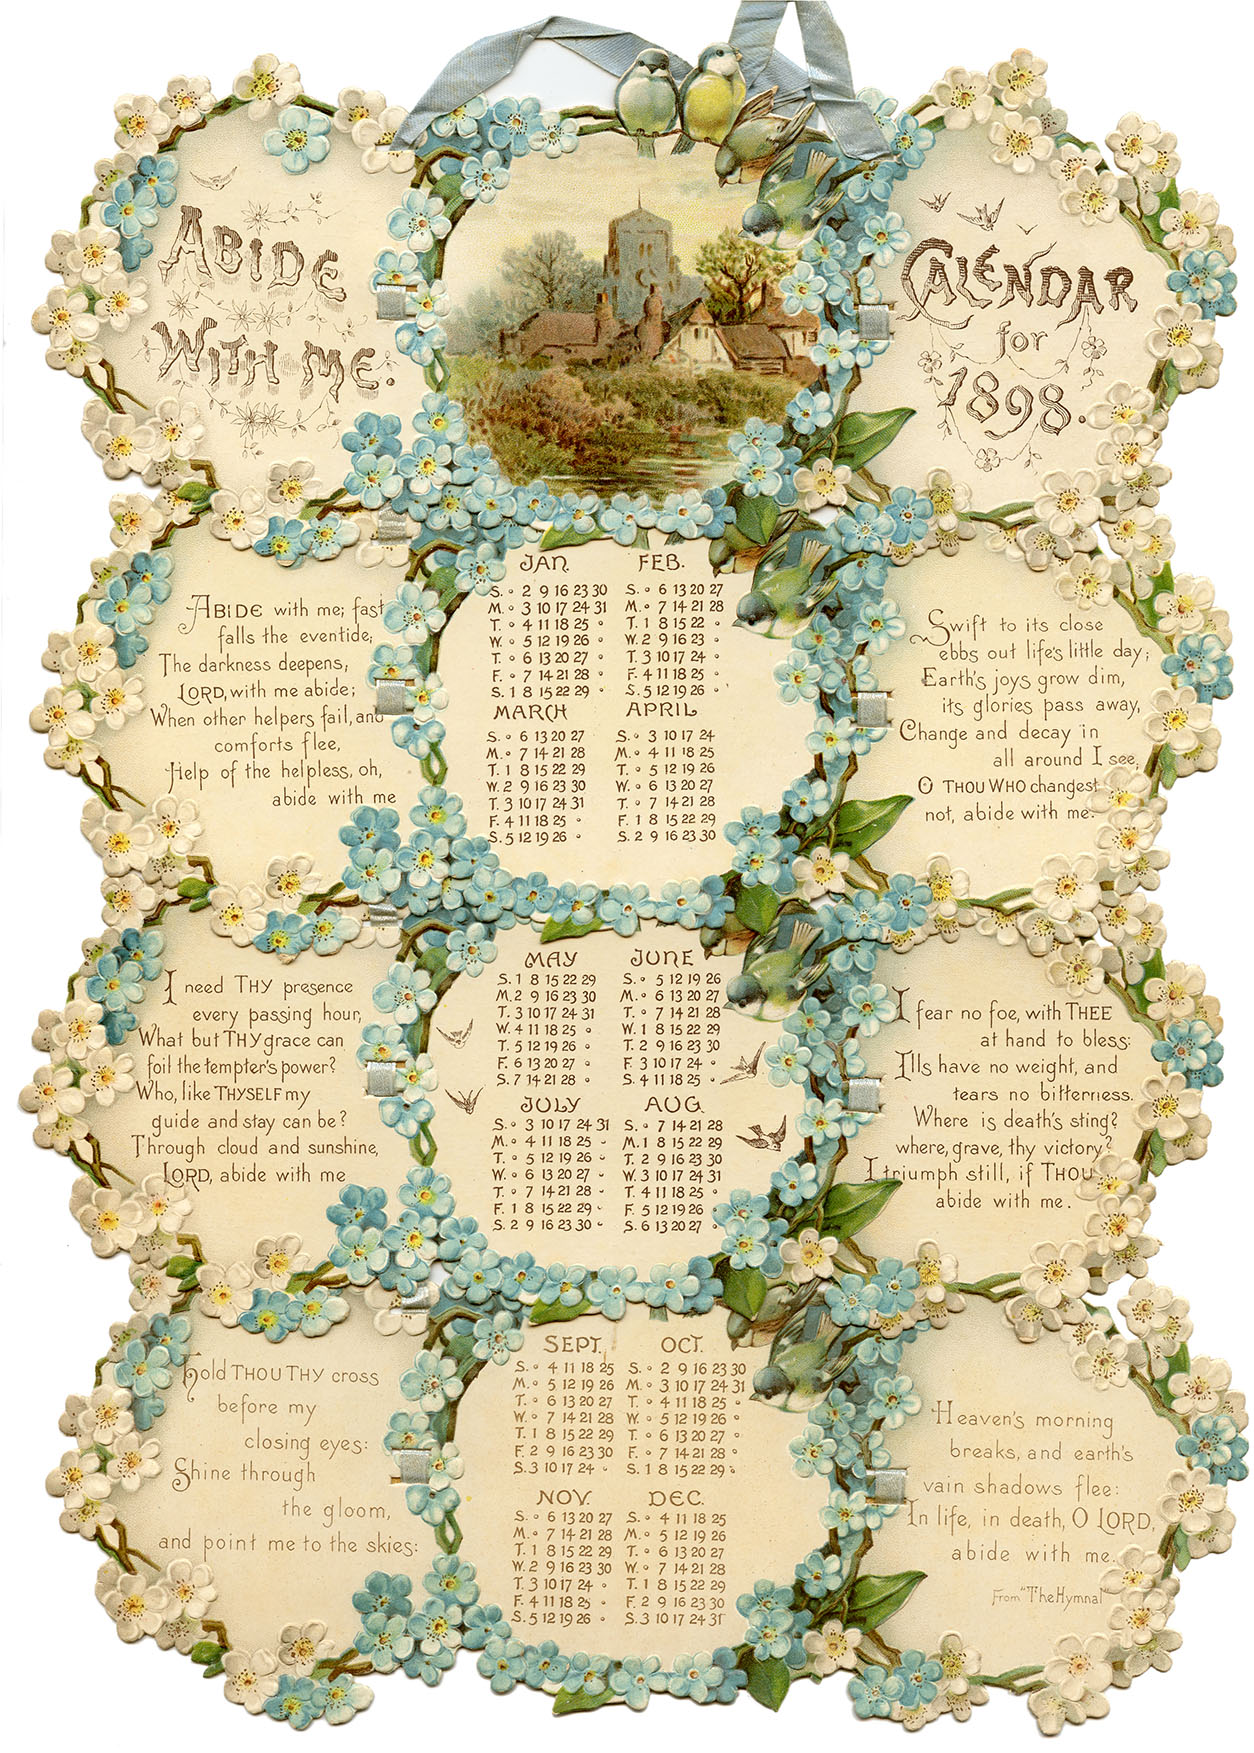 ABIDE
WITH ME.
CALENDAR
for
1898.
ABIDE with me; fast
falls the eventide;
The darkness deepens,
LORD, with me abide;
When other helpers fail, and
comforts flee,
Help of the helpless, oh,
abide with me
JAN.
S. ∘ 2 9 16 23 30
M. ∘ 3 10 17 24 31
T. ∘ 4 11 18 25 ∘
W. ∘ 5 12 19 26 ∘
T. ∘ 6 13 20 27 ∘
F. ∘ 7 14 21 28 ∘
S. 1 8 15 22 29 ∘
FEB.
S. ∘ 6 13 20 27
M. ∘ 7 14 21 28
T. 1 8 15 22 ∘
W. 2 9 16 23 ∘
T. 3 10 17 24 ∘
F. 4 11 18 25 ∘
S. 5 12 19 26 ∘
MARCH
S. ∘ 6 13 20 27
M. ∘ 7 14 21 28
T. 1 8 15 22 29
W. 2 9 16 23 30
T. 3 10 17 24 31
F. 4 11 18 25 ∘
S. 5 12 19 26 ∘
APRIL
S. ∘ 3 10 17 24
M. ∘ 4 11 18 25
T. ∘ 5 12 19 26
W. ∘ 6 13 20 27
T. ∘ 7 14 21 28
F. 1 8 15 22 29
S. 2 9 16 23 30
Swift to its close
ebbs out life's little day;
Earth's joys grow dim,
its glories pass away,
Change and decay in
all around I see,
O THOU WHO changest
not, abide with me.
I need THY presence
every passing hour,
What but THY grace can
foil the tempter's power?
Who, like THYSELF my
guide and stay can be?
Through cloud and sunshine,
LORD, abide with me
MAY
S. 1 8 15 22 29
M. 2 9 16 23 30
T. 3 10 17 24 31
W. 4 11 18 25 ∘
T. 5 12 19 26 ∘
F. 6 13 20 27 ∘
S. 7 14 21 28 ∘
JUNE
S. ∘ 5 12 19 26
M. ∘ 6 13 20 27
T. ∘ 7 14 21 28
W. 1 8 15 22 29
T. 2 9 16 23 30
F. 3 10 17 24 ∘
S. 4 11 18 25 ∘
JULY
S. ∘ 3 10 17 24 31
M. ∘ 4 11 18 25 ∘
T. ∘ 5 12 19 26 ∘
W. ∘ 6 13 20 27 ∘
T. ∘ 7 14 21 28 ∘
F. 1 8 15 22 29 ∘
S. 2 9 16 23 30 ∘
AUG.
S. ∘ 7 14 21 28
M. 1 8 15 22 29
T. 2 9 16 23 30
W. 3 10 17 24 31
T. 4 11 18 25 ∘
F. 5 12 19 26 ∘
S. 6 13 20 27 ∘
I fear no foe, with THEE
at hand to bless:
Ills have no weight, and
tears no bitterness.
Where is death's sting?
where, grave, thy victory?
I triumph still, if THOU
abide with me.
Hold THOU THY cross
before my
closing eyes:
Shine through
the gloom,
and point me to the skies:
SEPT.
S. ∘ 4 11 18 25
M. ∘ 5 12 19 26
T. ∘ 6 13 20 27
W. ∘ 7 14 21 28
T. 1 8 15 22 29
F. 2 9 16 23 30
S. 3 10 17 24 ∘
OCT.
S. ∘ 2 9 16 23 30
M. ∘ 3 10 17 24 31
T. ∘ 4 11 18 25 ∘
W. ∘ 5 12 19 26 ∘
T. ∘ 6 13 20 27 ∘
F. ∘ 7 14 21 28 ∘
S. 1 8 15 22 29 ∘
NOV.
S. ∘ 6 13 20 27
M. ∘ 7 14 21 28
T. 1 8 15 22 29
W. 2 9 16 23 30
T. 3 10 17 24 ∘
F. 4 11 18 25 ∘
S. 5 12 19 26 ∘
DEC.
S. ∘ 4 11 18 25
M. ∘ 5 12 19 26
T. ∘ 6 13 20 27
W. ∘ 7 14 21 28
T. 1 8 15 22 29
F. 2 9 16 23 30
S. 3 10 17 24 31
Heaven's morning
breaks, and earth's
vain shadows flee:
In life, in death, O LORD,
abide with me.
From "The Hymnal"